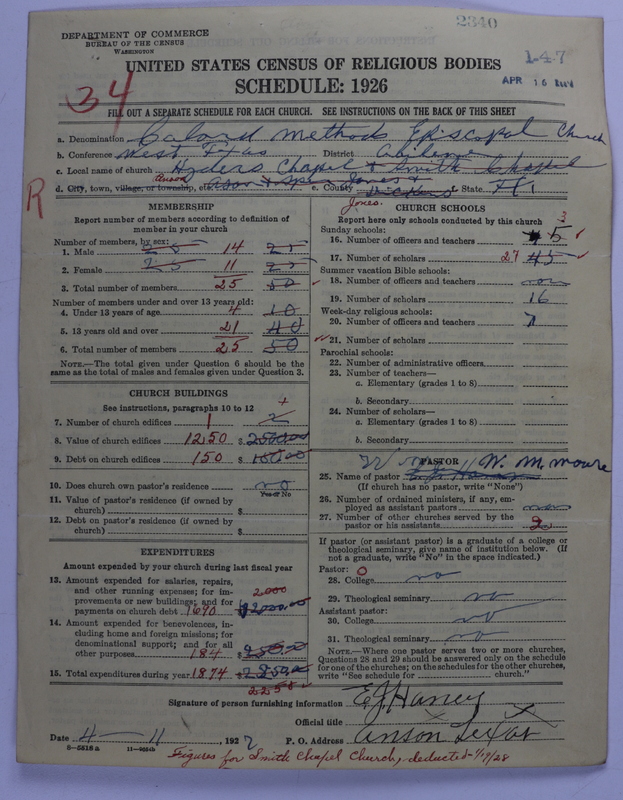 2340
DEPARTMENT OF COMMERCE
BUREAU OF THE CENSUS
WASHINGTON
1-47
APR 16
UNITED STATES CENSUS OF RELIGIOUS BODIES
SCHEDULE: 1926
34
FILL OUT A SEPARATE SCHEDULE FOR EACH CHURCH. SEE INSTRUCTIONS ON THE BACK OF THIS SHEET
a. Denomination Colord Methods Episcopal Church
b. Conference West Texas District Abilene
c. Local name of church Hyders Chapel + Smith Chapel
d. City, town, village, or township, etc. Anson e. County Jones f. State
R
Jones.
MEMBERSHIP
Report number of members according to definition of
member in your church
Number of members, by sex:
1. Male 25 14 25
2. Female 25 11 25
3. Total number of members 25 50
Number of members under and over 13 years old:
4. Under 13 years of age 4 10
5. 13 years old and over 21 40
6. Total number of members 25 50
NOTE.—The total given under Question 6 should be the
same as the total of males and females given under Question 3.
CHURCH BUILDINGS
See instructions, paragraphs 10 to 12
7. Number of church edifices 1 2
8. Value of church edifices 1250 $ 2500.00
9. Debt on church edifices 150 $ 150.00
10. Does church own pastor's residence no
Yes or No
11. Value of pastor's residence (if owned by
church) $
12. Debt on pastor's residence (if owned by
church) $
EXPENDITURES
Amount expended by your church during last fiscal year
13. Amount expended for salaries, repairs,
and other running expenses; for im-
provements or new buildings; and for
payments on church debt 1690 $ 2000.00
2000
14. Amount expended for benevolences, in-
cluding home and foreign missions; for
denominational support; and for all
other purposes 184 $ 250.00
15. Total expenditures during year 1874 $ 2250.00
2250
CHURCH SCHOOLS
Report here only schools conducted by this church
Sunday schools:
3
16. Number of officers and teachers 5
17. Number of scholars 27 45
Summer vacation Bible schools:
18. Number of officers and teachers
19. Number of scholars 16
Week-day religious schools:
20. Number of officers and teachers
21. Number of scholars
Parochial schools:
22. Number of administrative officers
23. Number of teachers—
a. Elementary (grades 1 to 8)
b. Secondary
24. Number of scholars—
a. Elementary (grades 1 to 8)
b. Secondary
PASTOR
25. Name of pastor W. M. Moore
(If church has no pastor, write "None")
26. Number of ordained ministers, if any, em-
ployed as assistant pastors
27. Number of other churches served by the
pastor or his assistants 2
If pastor (or assistant pastor) is a graduate of a college or
theological seminary, give name of institution below. (If
not a graduate, write "No" in the space indicated.)
Pastor: 0
28. College no
29. Theological seminary no
Assistant pastor:
30. College no
31. Theological seminary no
NOTE.—Where one pastor serves two or more churches,
Questions 28 and 29 should be answered only on the schedule
for one of the churches; on the schedules for the other churches,
write "See schedule for church."
Signature of person furnishing information E J Haney
Official title x x
Date 4 - 11, 1927 P. O. Address Anson Texas
8-5518 a 11-9664b
Figures for Smith Chapel Church, deducted-1/19/28